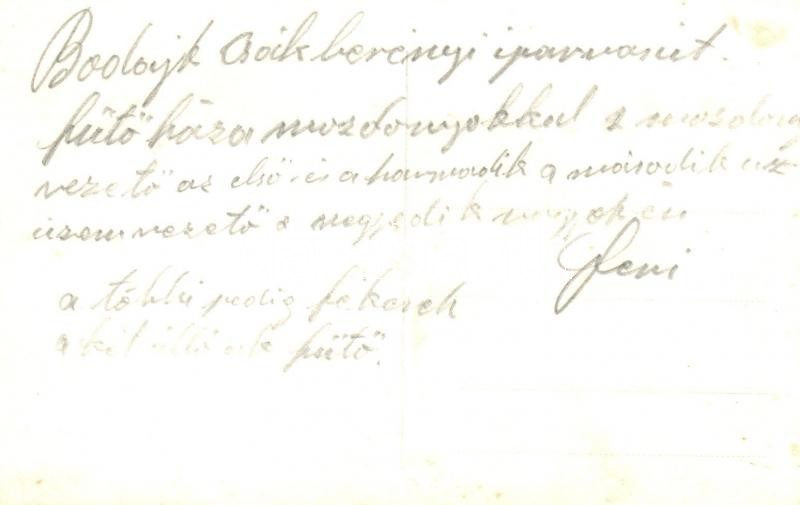 Bodajk Csákberényi iparvasút.
fűtő háza mozdonyokkal 2 mozdony
vezető az első és a harmadik a második az
üzemvezető a negyedik én
Feri
a többi pedig fékesek
a két ülő fűtő.